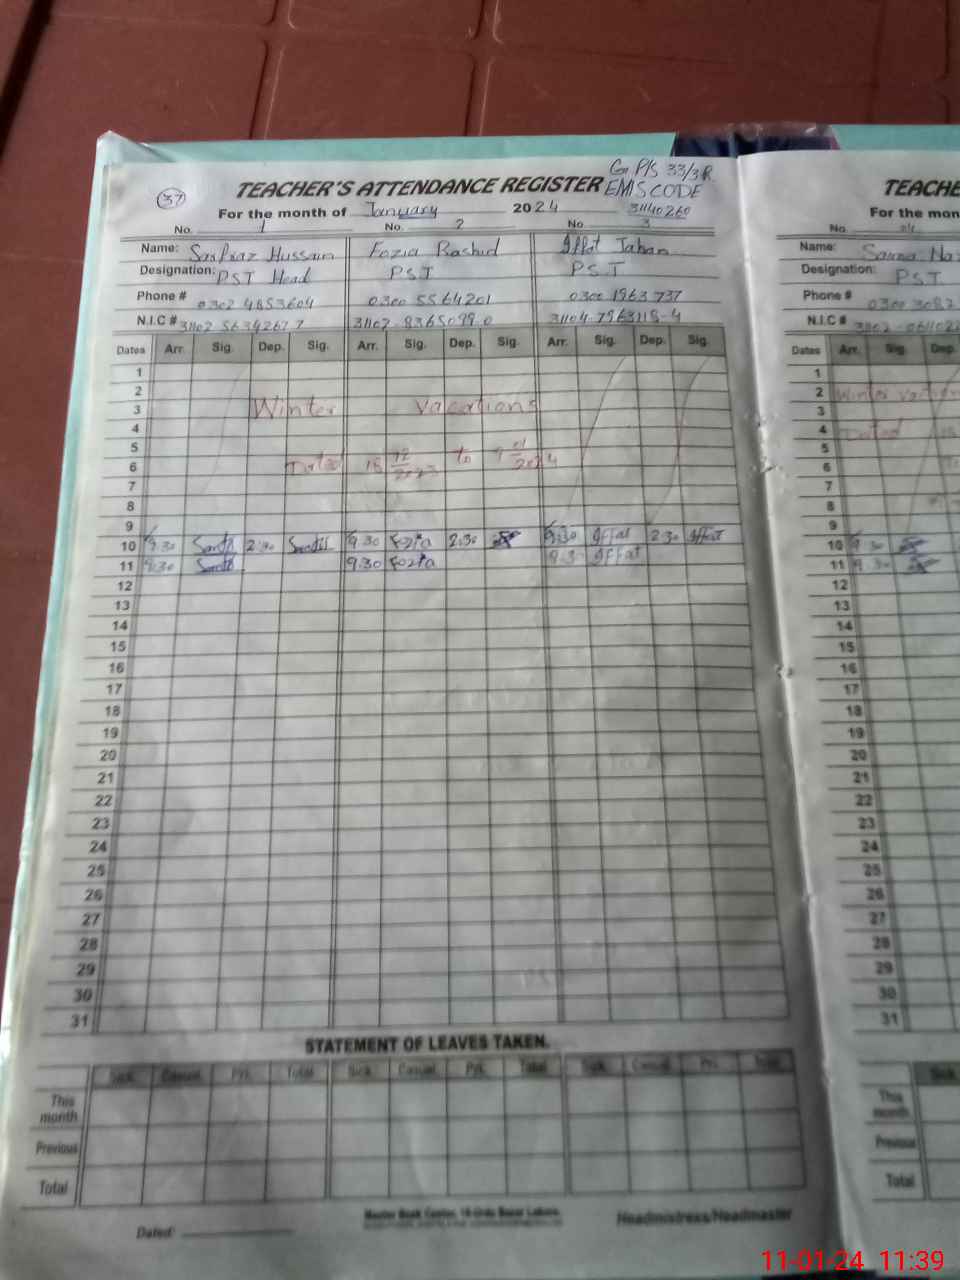 37
TEACHER'S ATTENDANCE REGISTER
G. P/S 33/3R
EMIS CODE
31140260
For the month of January 2024
No. 1 No. 2 No. 3
Name: Sarfraz Hussain Fozia Rashid Iffat Jahan
Designation: PST Head PST PST
Phone # 0302 4853604 0300 5564201 0300 1963737
N.I.C # 31102 5634267 7 31102-8365099-0 31104-7963118-4
Dates Arr. Sig. Dep. Sig. Arr. Sig. Dep. Sig. Arr. Sig. Dep. Sig.
1
2
3 Winter vacations
4
5
6 Dated 18 12/2023 to 9 01/2024
7
8
9
10 9:30 2:30 9.30 Fozia 2:30 9:30 Iffat 2 30 Iffat
11 9:30 9.30 Fozia 9:30 Iffat
12
13
14
15
16
17
18
19
20
21
22
23
24
25
26
27
28
29
30
31
STATEMENT OF LEAVES TAKEN.
Sick. Casual. Pri. Total Sick. Casual. Pri. Total Sick. Casual. Pri. Total
This month
Previous
Total
Dated:
Master Book Center, 10-Urdu Bazar Lahore.
Headmistress/Headmaster
TEACHE
For the mon
No.
Name: Saima Na
Designation: PST
Phone # 0300 3082
N.I.C #
Dates Arr. Sig. Dep.
1
2 Winter vacation
3
4 Dated
5
6
7
8
9
10 9 30
11 9.30
12
13
14
15
16
17
18
19
20
21
22
23
24
25
26
27
28
29
30
31
Sick
This month
Previous
Total
11-01-24 11:39